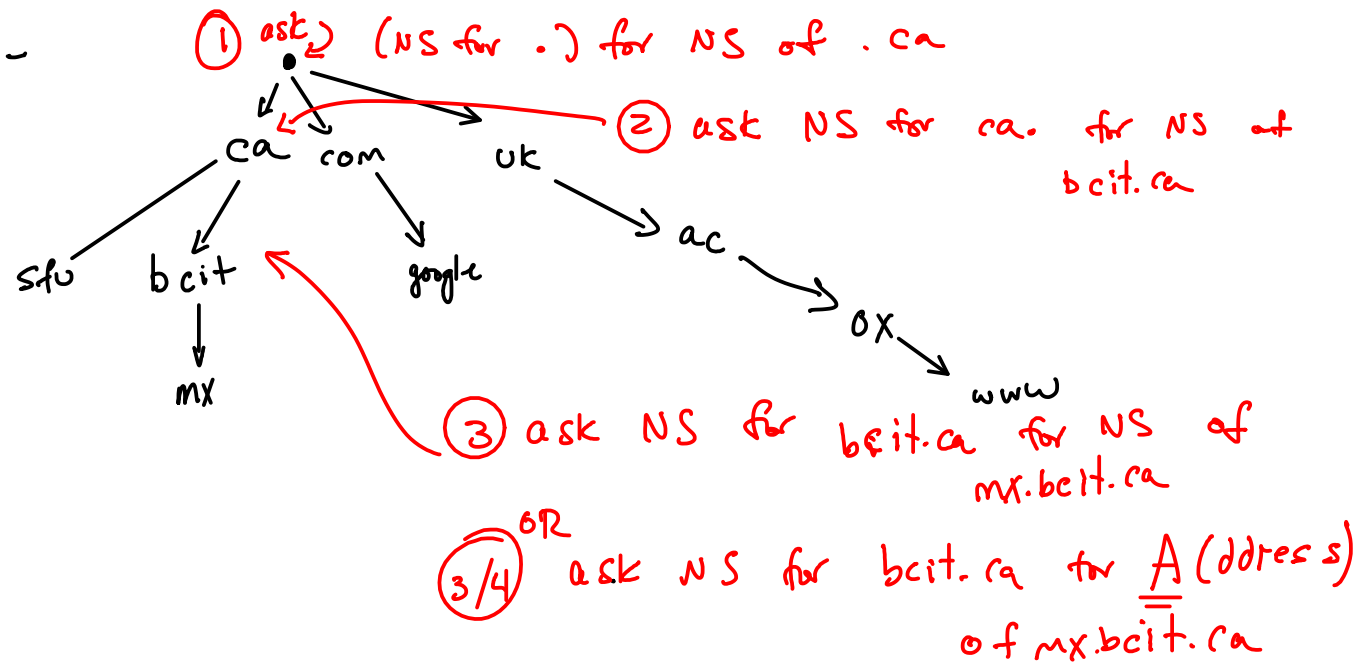 ① ask (NS for .) for NS of .ca
② ask NS for ca. for NS of
bcit.ca
ca com uk
ac
sfu bcit google
ox
mx
www
③ ask NS for bcit.ca for NS of
mx.bcit.ca
OR
3/4 ask NS for bcit.ca for A(ddress)
of mx.bcit.ca